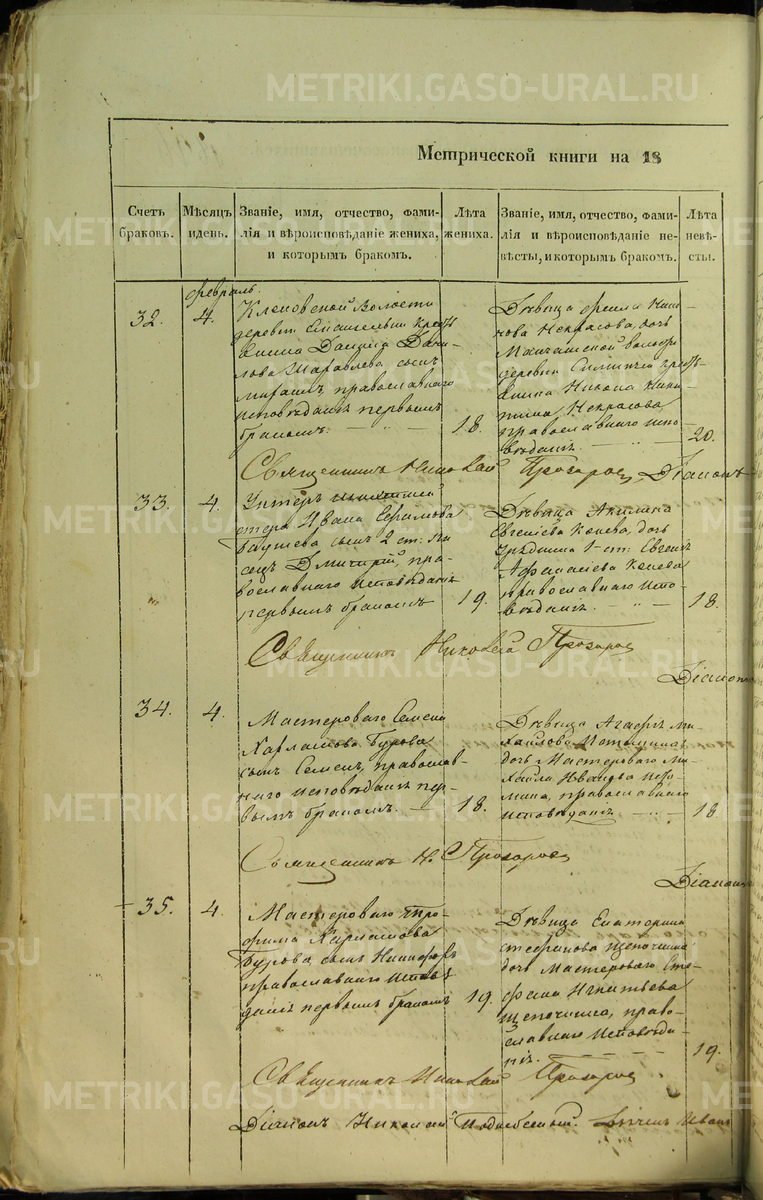 METRIKI.GASO-URAL.RU
Метрической книги на 18
Счетъ браковъ.
Мѣсяцъ и день.
Званіе, имя, отчество, фами-
лія и вѣроисповѣданіе жениха,
и которымъ бракомъ.
Лѣта жениха.
Званіе, имя, отчество, фами-
лія и вѣроисповѣданіе не-
вѣсты, и которымъ бракомъ.
Лѣта невѣ-
сты.
февраль
32.
4.
Кленовской Волости
деревни
Данила Дани-
лова сынъ
православнаго
исповѣданія первымъ
бракомъ.
18.
Дѣвица
Некрасова, дочь
деревни
Никона Ники-
тина Некрасова
православнаго испо-
вѣданія.
20.
Священникъ Николай Прозоров
Діаконъ
33.
4.
Унтеръ
Ивана Ефимова
сынъ 2 ст. пи-
сецъ Дмитрій, пра-
вославнаго исповѣданія
первымъ бракомъ
19.
Дѣвица Акилина
Евгеніева Конева, дочь
Урядника 1 ст. Евгенія
Афанасіева Конева
православнаго испо-
вѣданія.
18.
Священникъ Николай Прозоров
Діаконъ
34.
4.
Мастероваго Семена
Харламова Бурова
сынъ Семенъ, православ-
наго исповѣданія пер-
вымъ бракомъ.
18.
Дѣвица Агафія Ми-
хайлова
дочь Мастероваго Ми-
хайла Иванова
православнаго
исповѣданія
18
Священникъ Н. Прозоров
Діаконъ
35.
4.
Мастероваго Тро-
фима Харламова
Бурова, сынъ Никифоръ
православнаго Исповѣ-
данія первымъ бракомъ
19.
Дѣвица Екатерина
Стефанова Щепочкина
дочь Мастероваго Сте-
фана Игнатьева
Щепочкина, право-
славнаго Исповѣда-
нія.
19.
Священникъ Николай Прозоров
Діаконъ Николай Иван